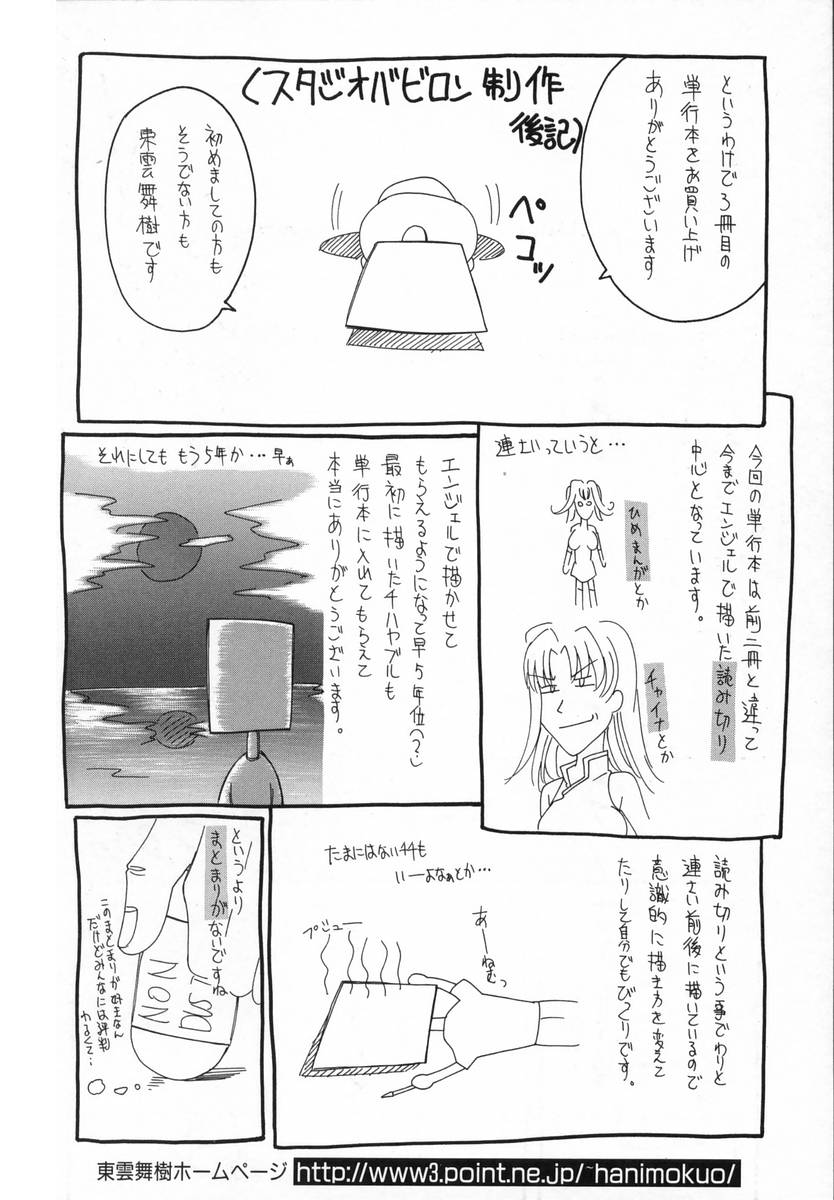 くスタジオバビロン制作
後記〉
というわけで3冊目の
単行本をお買い上げ
ありがとうございます
ペコッ
初めましての方も
そうでない方も
東雲舞樹です
今回の単行本は前二冊と違って
今までエンジェルで描いた読み切り
中心となっています。
連さいっていうと…
ひめまんがとか
チャイナとか
エンジェルで描かせて
もらえるようになって早5年位(?)
最初に描いたチハヤブルも
単行本に入れてもらえて
本当にありがとうございます。
それにしても もう5年か…早ぁ
読み切りという事でわりと
連さい前後に描いているので
意識的に描き方を変えて
たりして自分でもびっくりです。
たまにはない44も
いーよなぁとか…
あーねむっ
プジュー
というより
まとまりがないですね
このまとまりが好きなん
だけどみんなには評判
わるくて…
NON
DIST
東雲舞樹ホームページ http://www3.point.ne.jp/~hanimokuo/